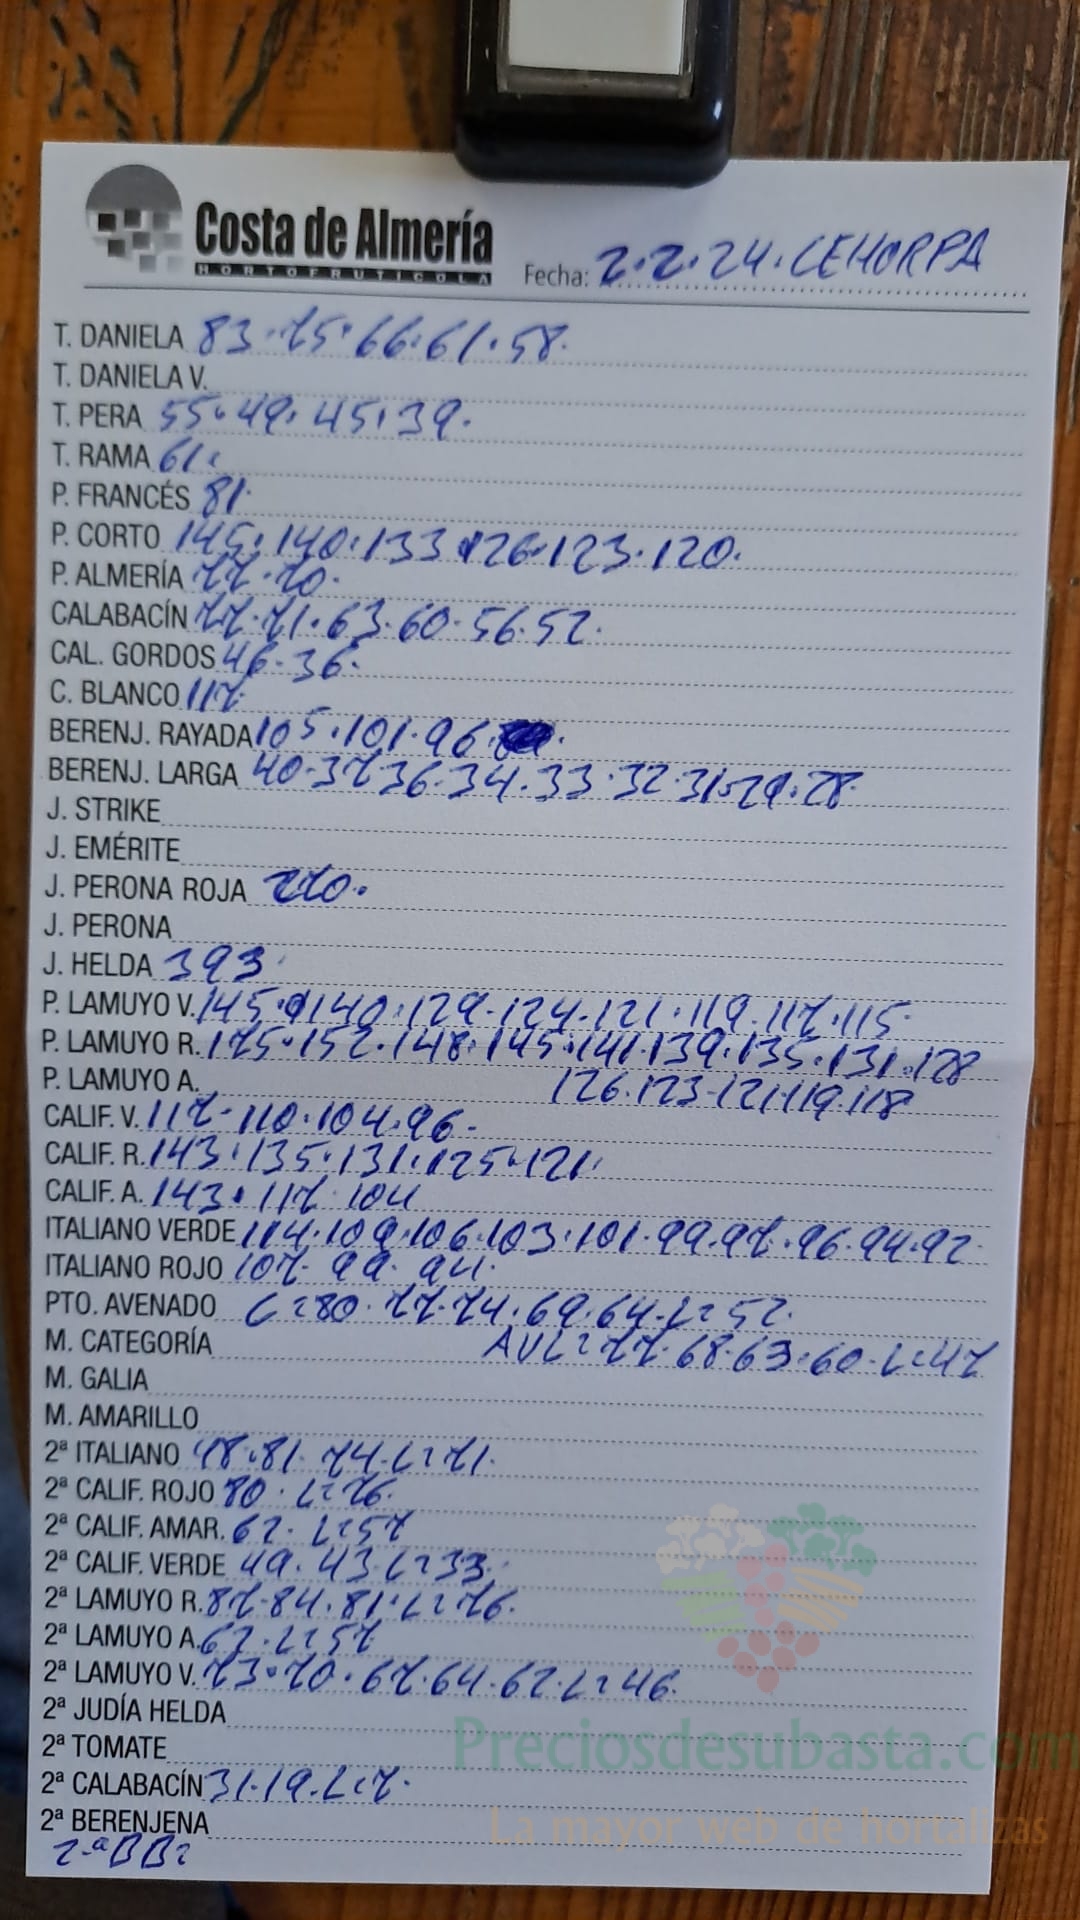 Costa de Almería
HORTOFRUTICOLA
Fecha: 2.2.24. CEHORPA
T. DANIELA 83.75.66.61.58.
T. DANIELA V.
T. PERA 55.49.45.39.
T. RAMA 61.
P. FRANCÉS 81.
P. CORTO 145.140.133.126.123.120.
P. ALMERÍA 77.70.
CALABACÍN 77.71.63.60.56.52.
CAL. GORDOS 46.36.
C. BLANCO 117.
BERENJ. RAYADA 105.101.96.
BERENJ. LARGA 40.37.36.34.33.32.31.29.28.
J. STRIKE
J. EMÉRITE
J. PERONA ROJA 270.
J. PERONA
J. HELDA 393.
P. LAMUYO V. 145.140.129.124.121.119.117.115.
P. LAMUYO R. 175.152.148.145.141.139.135.131.128
P. LAMUYO A. 126.123.121.119.118
CALIF. V. 117.110.104.96.
CALIF. R. 143.135.131.125.121.
CALIF. A. 143.117.104
ITALIANO VERDE 114.109.106.103.101.99.97.96.94.92.
ITALIANO ROJO 107.99.94.
PTO. AVENADO C=80.77.74.69.64.L=52.
M. CATEGORÍA AVL=77.68.63.60.L=47
M. GALIA
M. AMARILLO
2ª ITALIANO 81.74.L=71.
2ª CALIF. ROJO 80.L=76.
2ª CALIF. AMAR. 62.L=57
2ª CALIF. VERDE 49.43.L=33.
2ª LAMUYO R. 87.84.81.L=76.
2ª LAMUYO A. L=57
2ª LAMUYO V. 73.70.67.64.62.L=46.
2ª JUDÍA HELDA
2ª TOMATE
2ª CALABACÍN 31.19.L=7.
2ª BERENJENA
2ªBB=
Preciosdesubasta.com
La mayor web de hortalizas